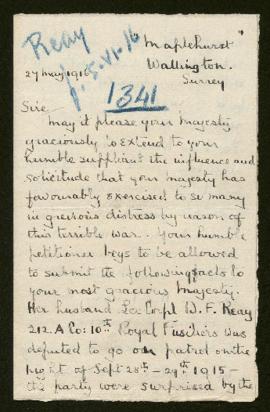 Reay
"Maplehurst"
Wallington.
Surrey
27 May 1916
P. 5.VI.16
1341
Sire
May it please your Majesty
graciously to extend to your
humble suppliant the influence and
solicitude that your Majesty has
favourably exercised to so many
in grevious distress by reason of
this terrible war. Your humble
petitioner begs to be allowed
to submit the following facts to
your most gracious Majesty.
Her husband Lce Corpl W. F. Reay
212. A Co: 10th Royal Fusiliers was
deputed to go on patrol on the
night of Sept 28th - 29th 1915 -
the party were surprised by the